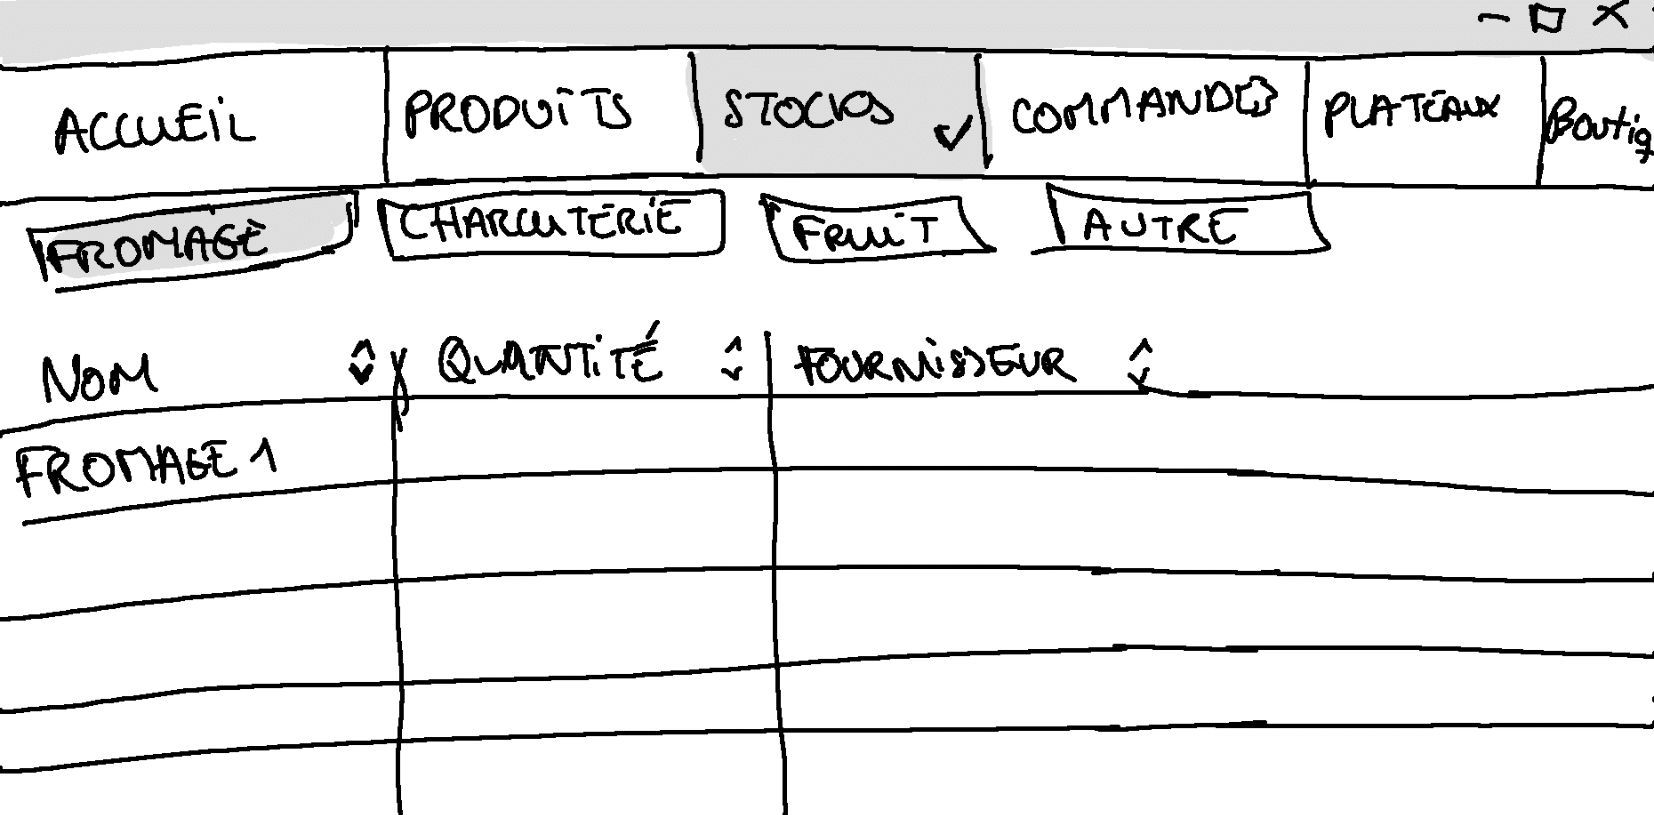 ACCUEIL PRODUITS STOCKS COMMANDES PLATEAUX Boutiq
FROMAGE CHARCUTERIE FRUIT AUTRE
NOM QUANTITÉ FOURNISSEUR
FROMAGE 1